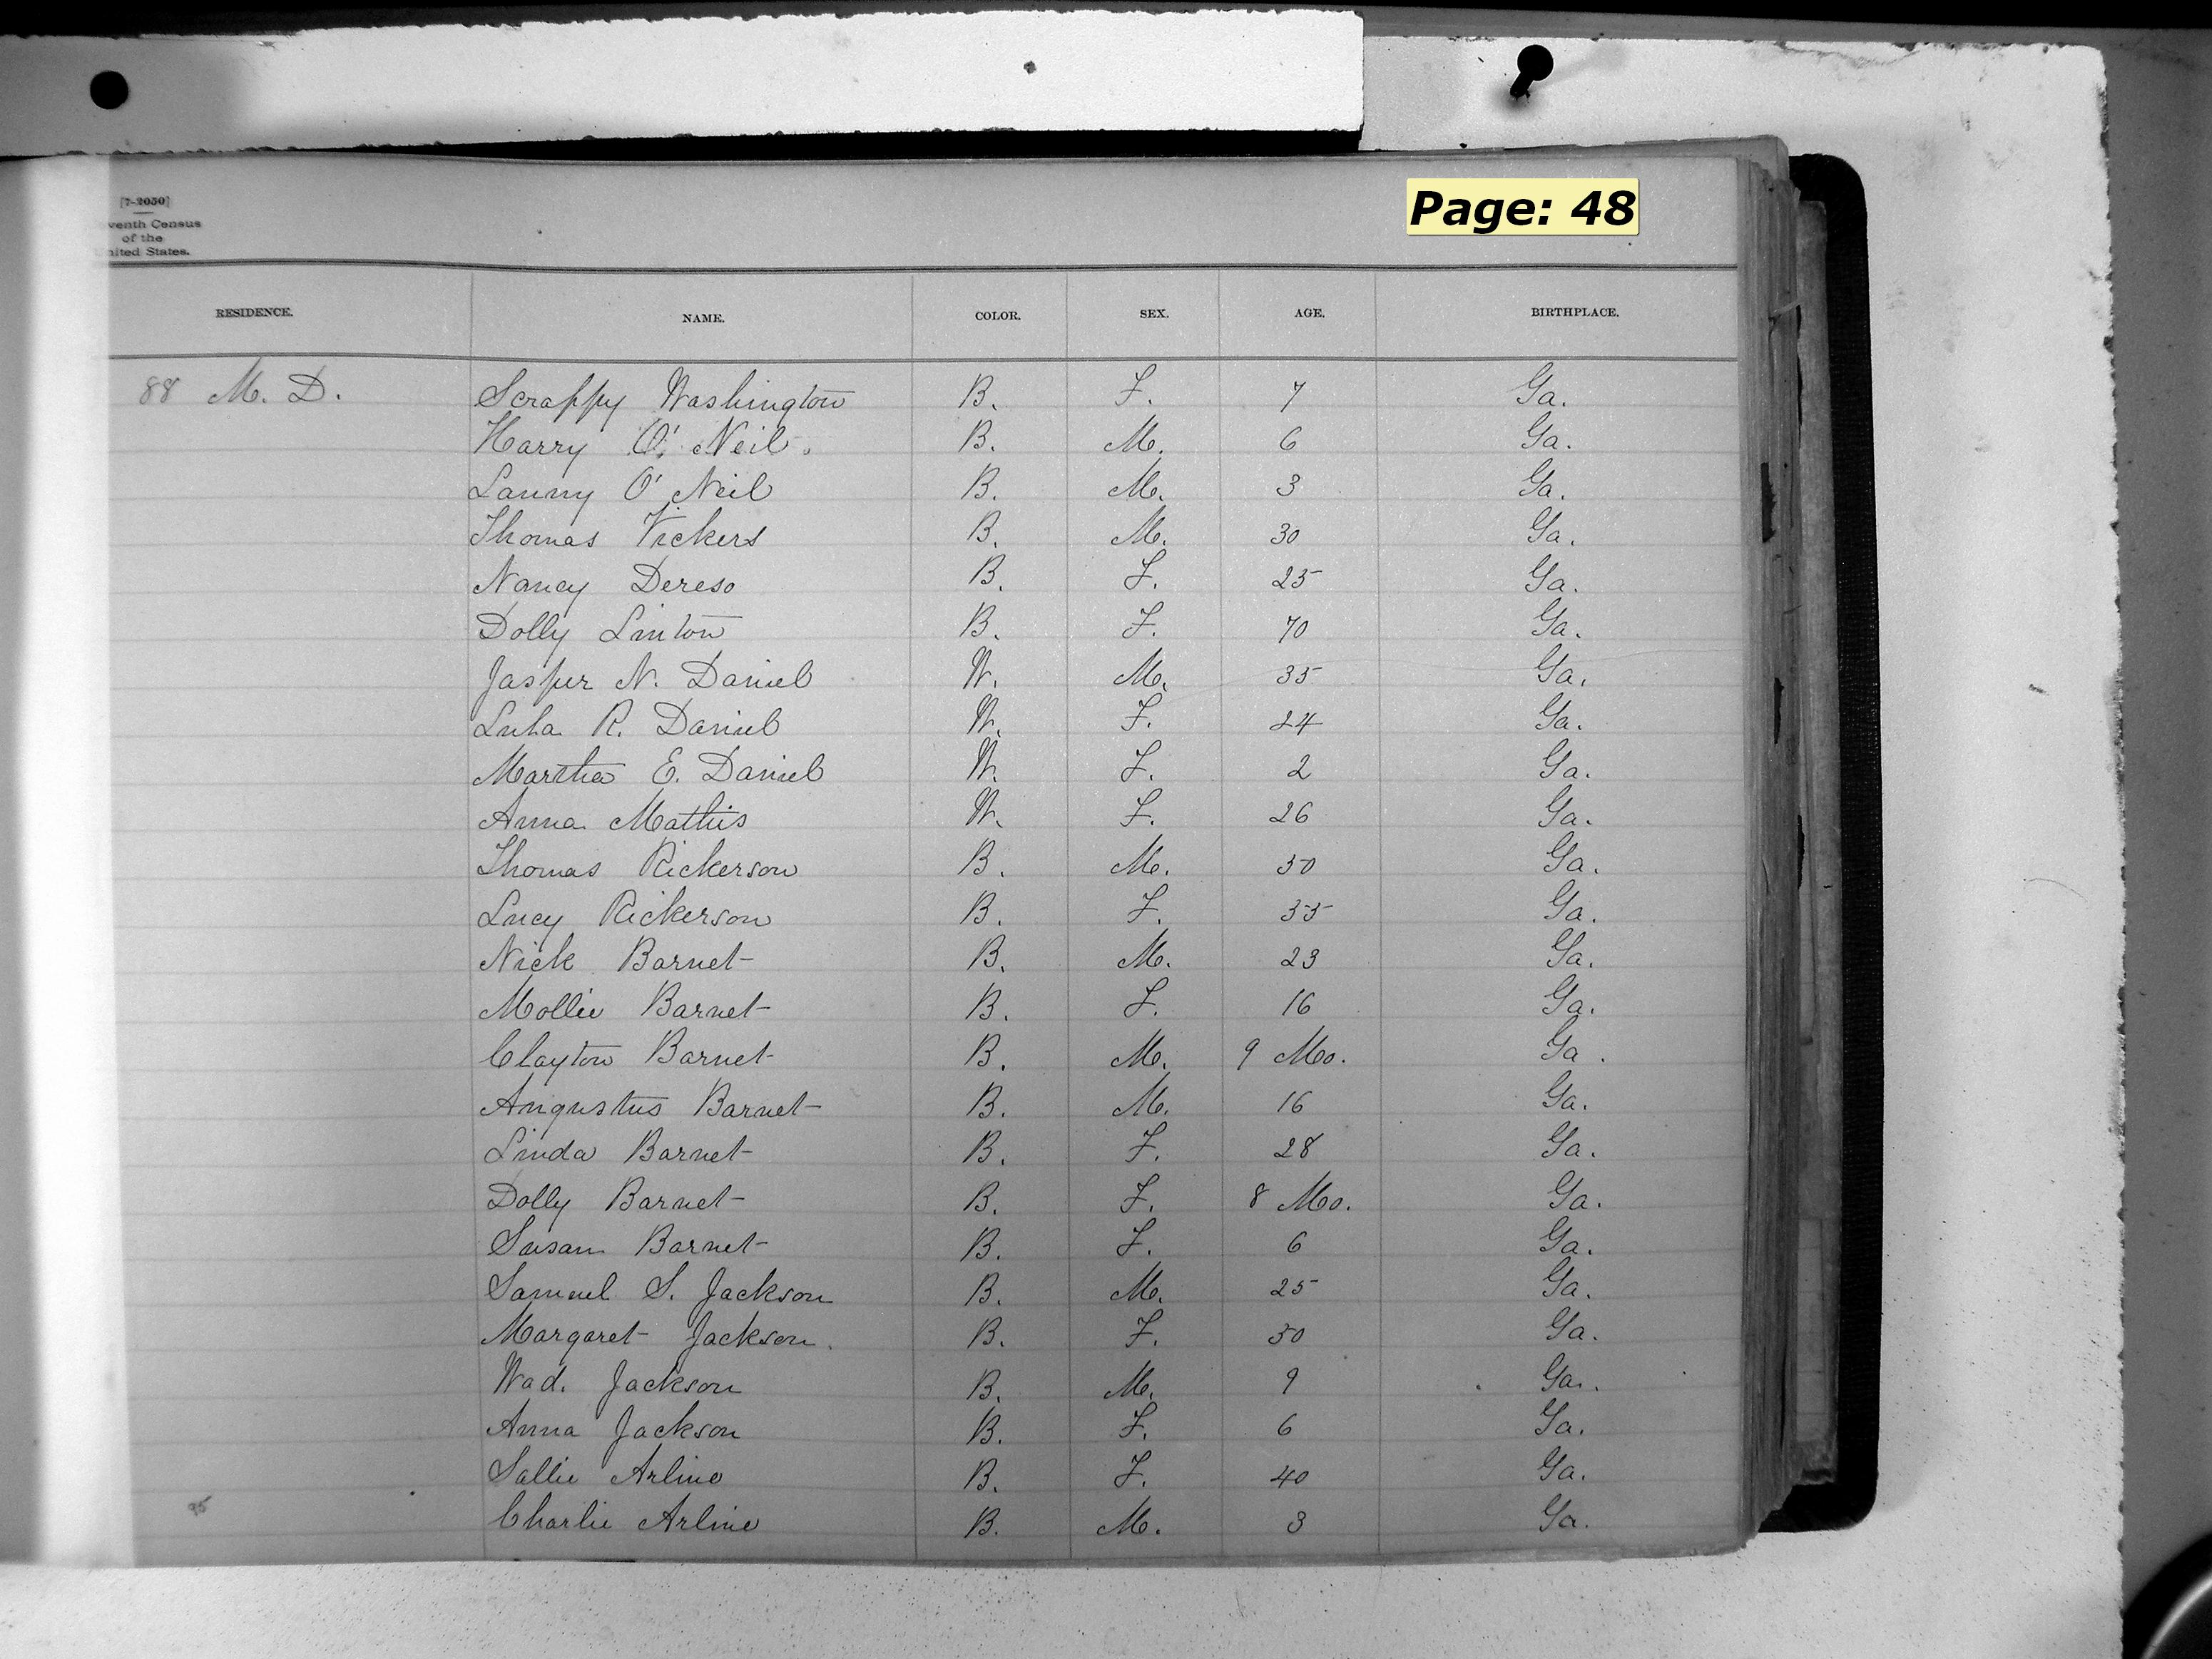 Page: 48
[7-2050]
venth Census
of the
nited States.
RESIDENCE. NAME. COLOR. SEX. AGE. BIRTHPLACE.
88 M. D. Scrappy Washington B. F. 7 Ga.
Harry O'Neil. B. M. 6 Ga.
Lanny O'Neil B. M. 3 Ga.
Thomas Vickers B. M. 30 Ga.
Nancy Dereso B. F. 25 Ga.
Dolly Linton B. F. 70 Ga.
Jasper N. Daniel W. M. 35 Ga.
Lula R. Daniel W. F. 24 Ga.
Martha E. Daniel W. F. 2 Ga.
Anna Mathis W. F. 26 Ga.
Thomas Rickerson B. M. 50 Ga.
Lucy Rickerson B. F. 35 Ga.
Nick Barnet B. M. 23 Ga.
Mollie Barnet B. F. 16 Ga.
Clayton Barnet B. M. 9 Mo. Ga.
Angustus Barnet B. M. 16 Ga.
Linda Barnet B. F. 28 Ga.
Dolly Barnet B. F. 8 Mo. Ga.
Susan Barnet B. F. 6 Ga.
Samuel S. Jackson B. M. 25 Ga.
Margaret Jackson. B. F. 30 Ga.
Wad. Jackson B. M. 9 Ga.
Anna Jackson B. F. 6 Ga.
Sallie Arline B. F. 40 Ga.
95 Charlie Arline B. M. 3 Ga.